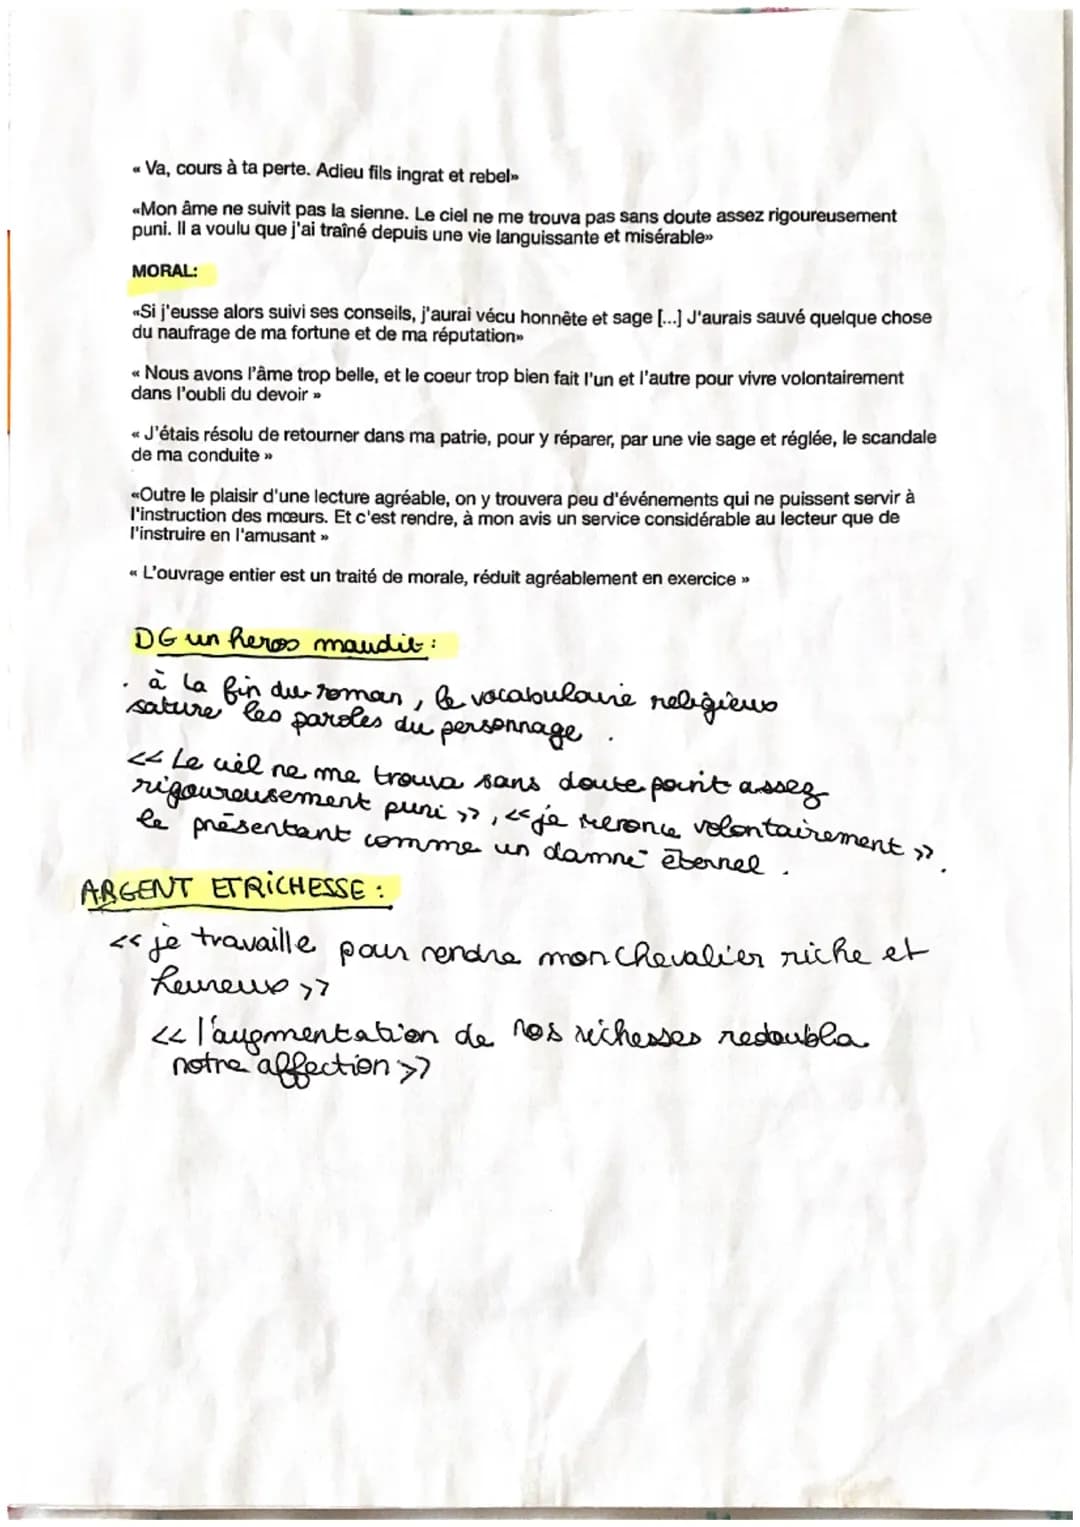 « Va, cours à ta perte. Adieu fils ingrat et rebel»
«Mon âme ne suivit pas la sienne. Le ciel ne me trouva pas sans doute assez rigoureusement
puni. Il a voulu que j'ai traîné depuis une vie languissante et misérable»
MORAL:
«Si j'eusse alors suivi ses conseils, j'aurai vécu honnête et sage [...] J'aurais sauvé quelque chose
du naufrage de ma fortune et de ma réputation»
« Nous avons l'âme trop belle, et le coeur trop bien fait l'un et l'autre pour vivre volontairement
dans l'oubli du devoir »
« J'étais résolu de retourner dans ma patrie, pour y réparer, par une vie sage et réglée, le scandale
de ma conduite »
«Outre le plaisir d'une lecture agréable, on y trouvera peu d'événements qui ne puissent servir à
l'instruction des mœurs. Et c'est rendre, à mon avis un service considérable au lecteur que de
l'instruire en l'amusant »
« L'ouvrage entier est un traité de morale, réduit agréablement en exercice »
DG un heros maudit :
. à la fin du roman, le vocabulaire religieux
sature les paroles du personnage .
<< Le ciel ne me trouva sans doute point assez
rigoureusement puni >>, << je renonce volontairement >>.
le présentant comme un damné éternel .
ARGENT ET RICHESSE :
<< je travaille pour rendre mon chevalier riche et
heureux >>
<< l'augmentation de nos richesses redoubla
notre affection >>